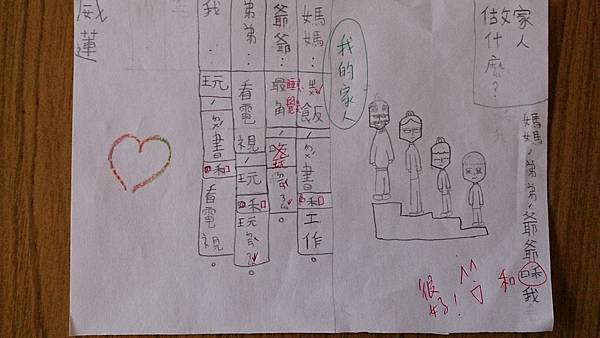 家人
做什麼?
媽媽、弟弟、爺爺咊我
和
很好!
我的家人
媽媽:煮飯、書和工作。
爺爺:最角、
睡覺
弟弟:看電視、玩和玩
我:玩、書和看電視。
威蓮